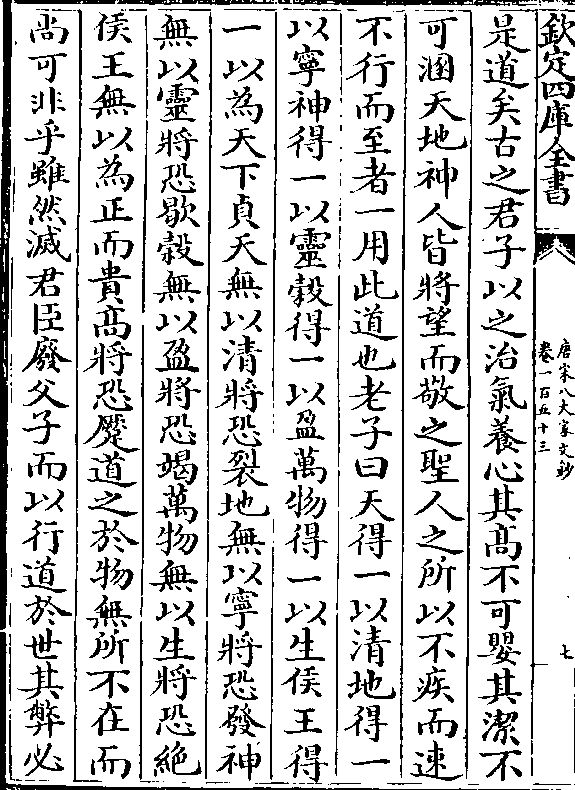 欽定四庫全書
唐宋八大家文鈔
卷一百五十三
七
是道矣古之君子以之治氣養心其髙不可嬰其潔不
可溷天地神人皆將望而敬之聖人之所以不疾而速
不行而至者一用此道也老子曰天得一以清地得一
以寧神得一以靈穀得一以盈萬物得一以生侯王得
一以為天下貞天無以清將恐裂地無以寧將恐發神
無以靈將恐歇穀無以盈將恐竭萬物無以生將恐絶
侯王無以為正而貴髙將恐蹷道之於物無所不在而
尚可非乎雖然滅君臣廢父子而以行道於世其弊必